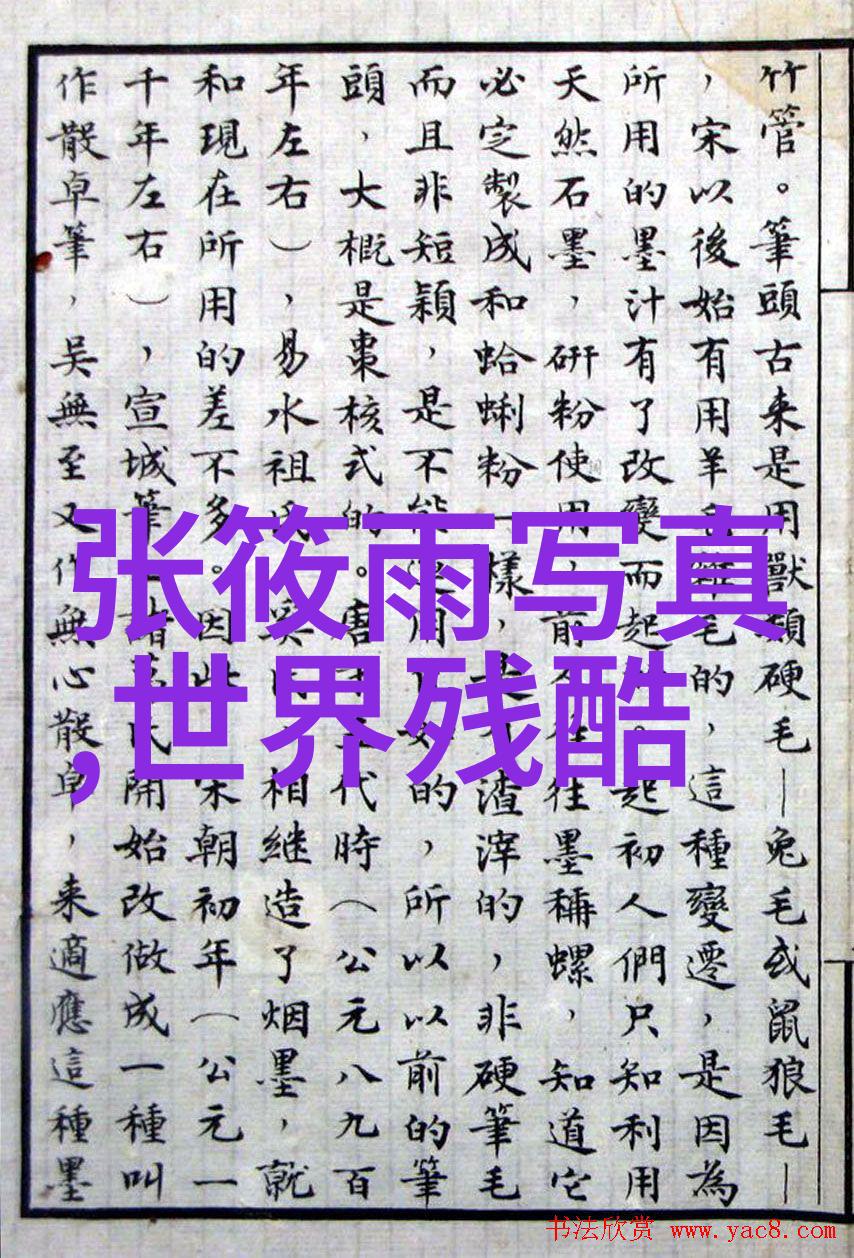 竹管。筆頭古来是用獸類硬毛－兔毛或鼠狼毛－
，宋以後始有用羊毛雜毛的，這種變遷，是因為
所用的墨汁有了改變而起。起初人們只知利用
天然石墨，研粉使用，前往往墨稱螺，知道它
必定製成和蛤蜊粉一樣，是渣滓的，非硬筆毛
而且非短穎，是不能用好的，所以以前的筆
頭，大概是棗核式的。唐五代時（公元八九百
年左右），易水祖氏奚相继造了烟墨，就
和現在所用的差不多。因此宋朝初年（公元一
千年左右），宣城筆諸葛氏開始改做成一種叫
作散卓筆，吳無至又作無心散卓，来適應這種墨
张筱雨写真
,世界残酷
书法欣赏 www.yac8.com